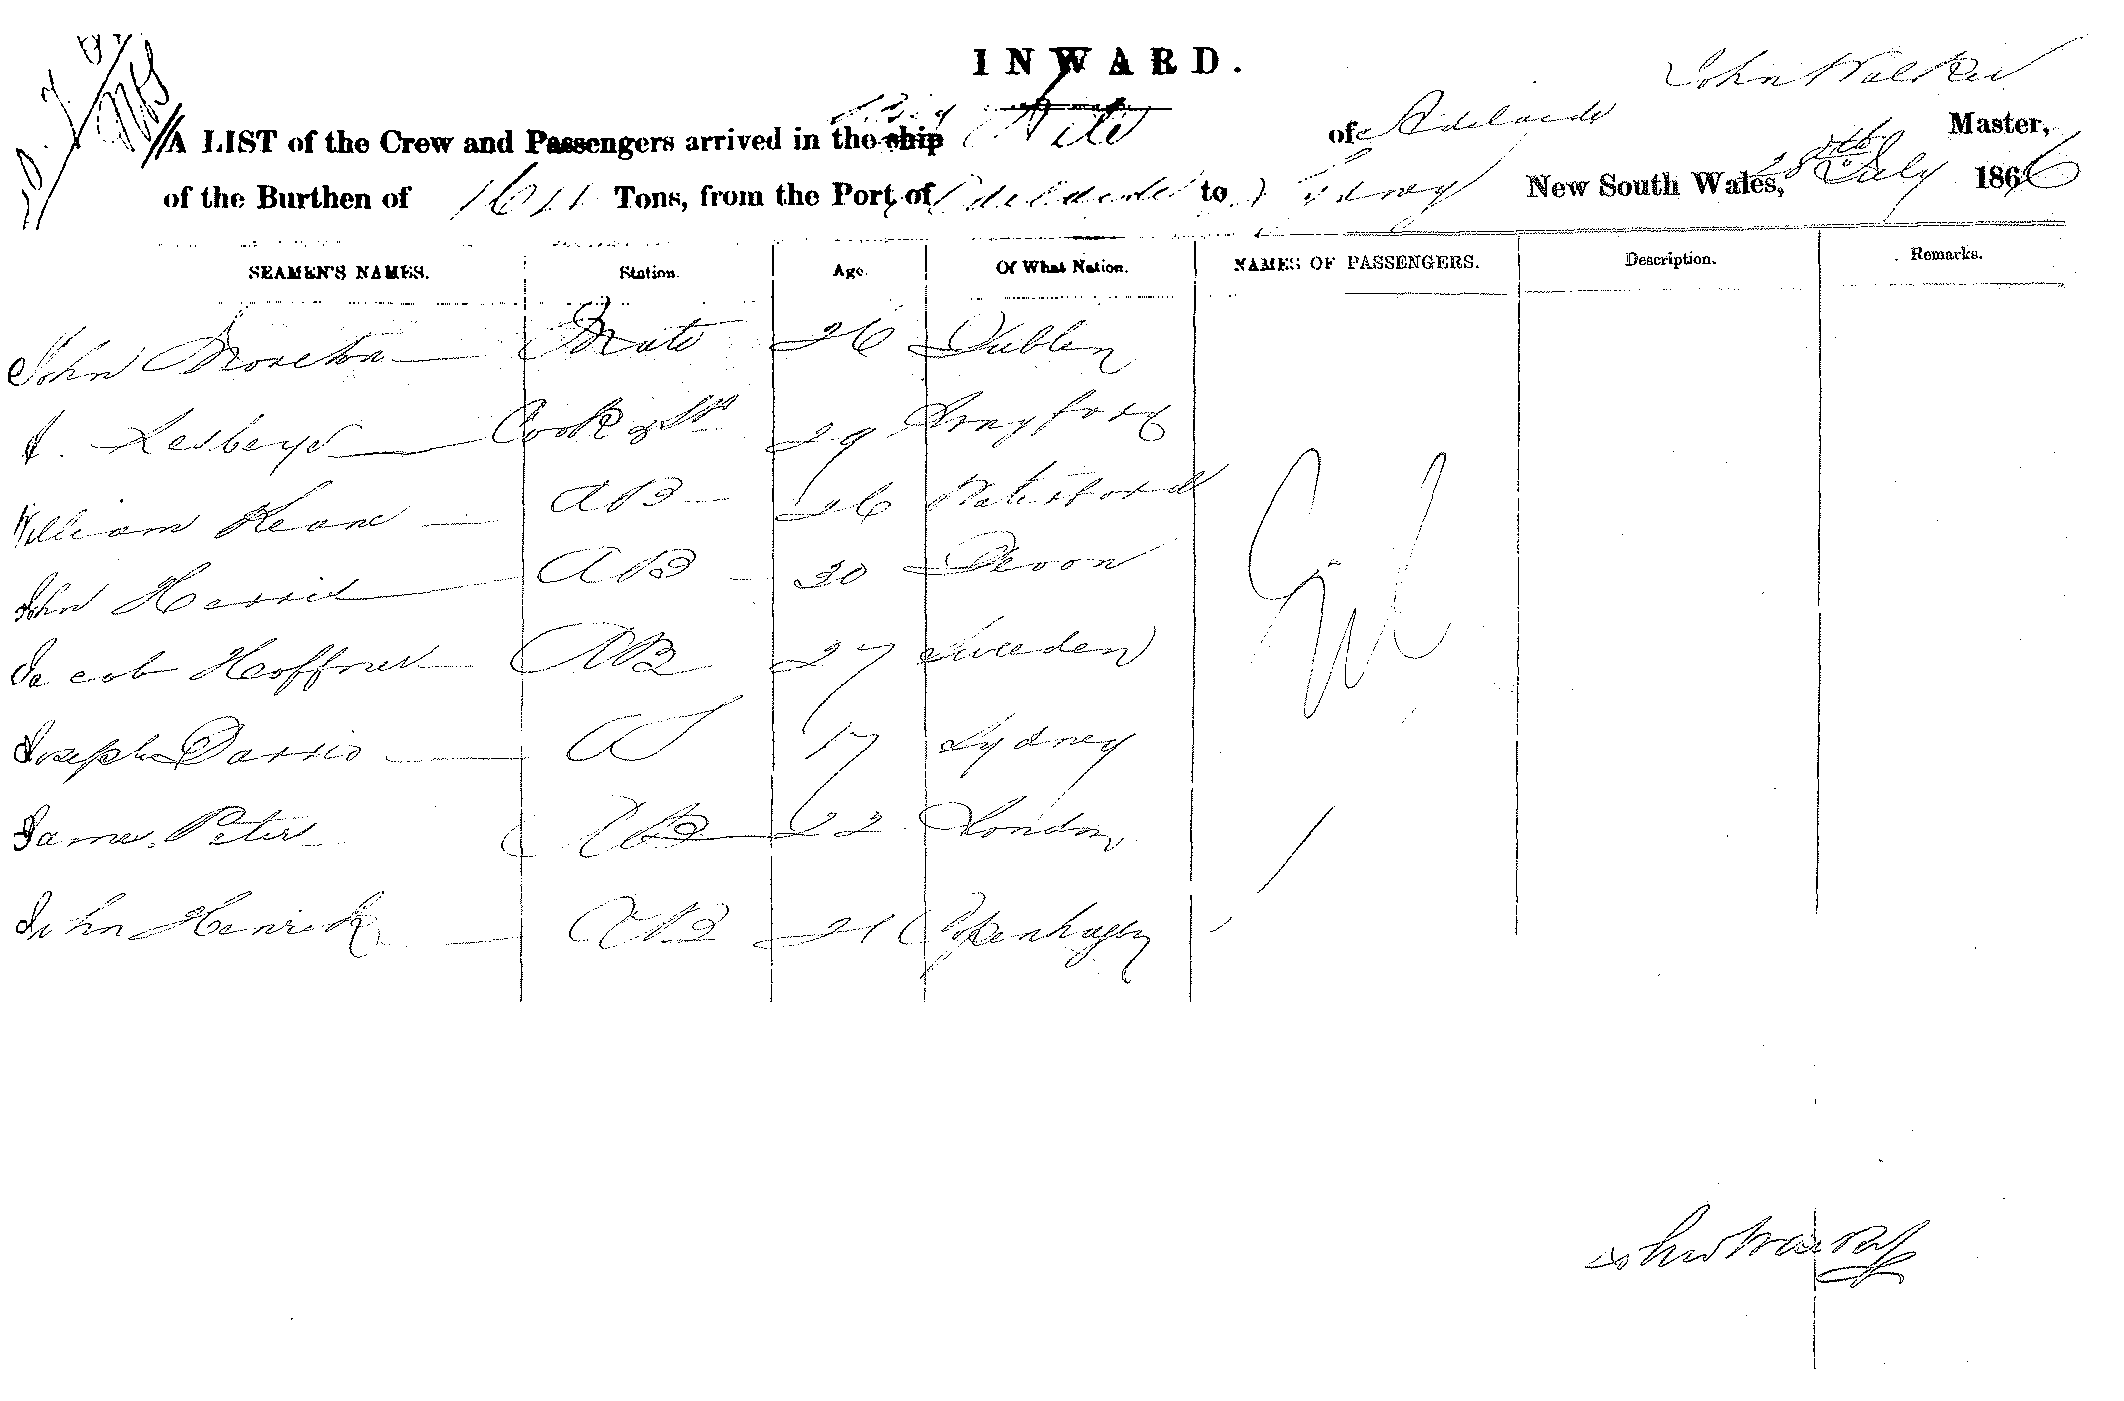 INWARD.
John Walker
A LIST of the Crew and Passengers arrived in the ship Brig Nile of Adelaide Master,
of the Burthen of 161 Tons, from the Port of Adelaide to Sydney New South Wales, 28th July 1866
SEAMEN'S NAMES. Station. Age. Of What Nation. NAMES OF PASSENGERS. Description. Remarks.
John Moreton Mate 26 Dublin
Cook & St 29
William Keane AB 26 Waterford
John AB 30 Devon
Jacob Hoffner AB 27 Sweden
Joseph OS 17 Sydney
James Peters AB 22 London
John Henrick AB 21 Copenhagen
Nil
John Walker